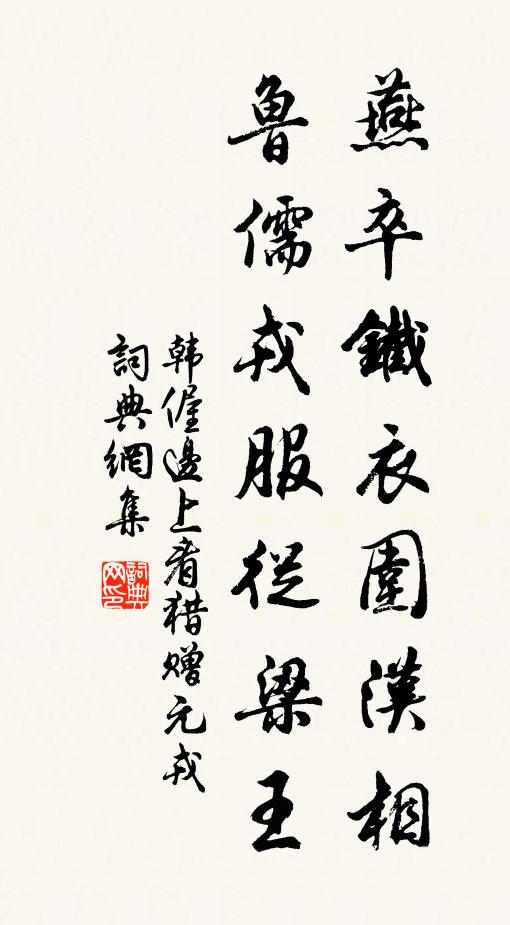 燕卒鐵衣圍漢相
魯儒戎服從梁王
韩偓邊上看猎赠元戎
詞典網集
詞典网印